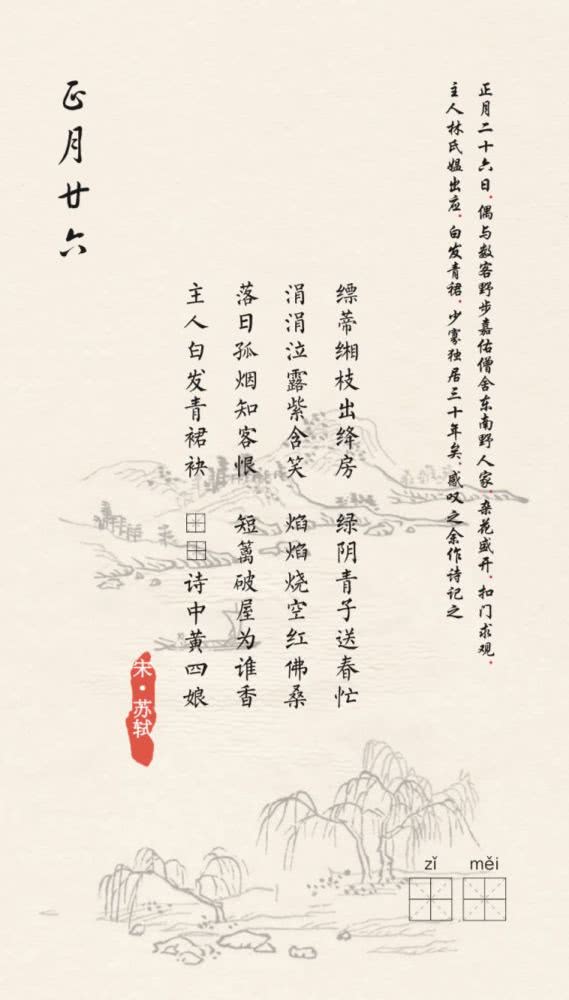 正月二十六日，偶与数客野步嘉佑僧舍东南野人家，杂花盛开，扣门求观，
主人林氏媪出应，白发青裙，少寡独居三十年矣，感叹之余作诗记之
正月廿六
缥蒂缃枝出绛房 绿阴青子送春忙
涓涓泣露紫含笑 焰焰烧空红佛桑
落日孤烟知客恨 短篱破屋为谁香
主人白发青裙袂 □□诗中黄四娘
宋·苏轼
zǐ měi